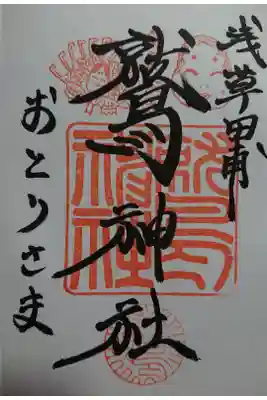 浅草田甫
鷲神社
おとりさま